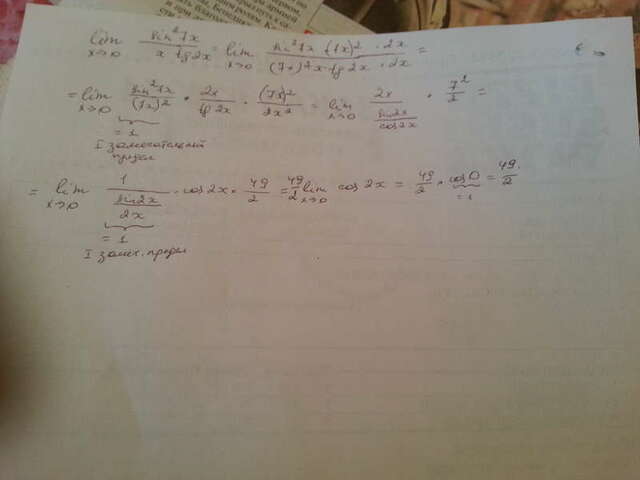 lim x→0 sin²7x / x tg2x = lim x→0 sin²7x · (7x)² · 2x / (7x)² x · tg2x · 2x =
= lim x→0 sin²7x / (7x)² · 2x / tg2x · (7x)² / 2x² = lim x→0 2x / (sin2x / cos2x) · 7² / 2 =
= 1
I замечательный
предел
= lim x→0 1 / (sin2x / 2x) · cos2x · 49/2 = 49/2 lim x→0 cos2x = 49/2 · cos0 = 49/2.
= 1
= 1
I замеч. предел